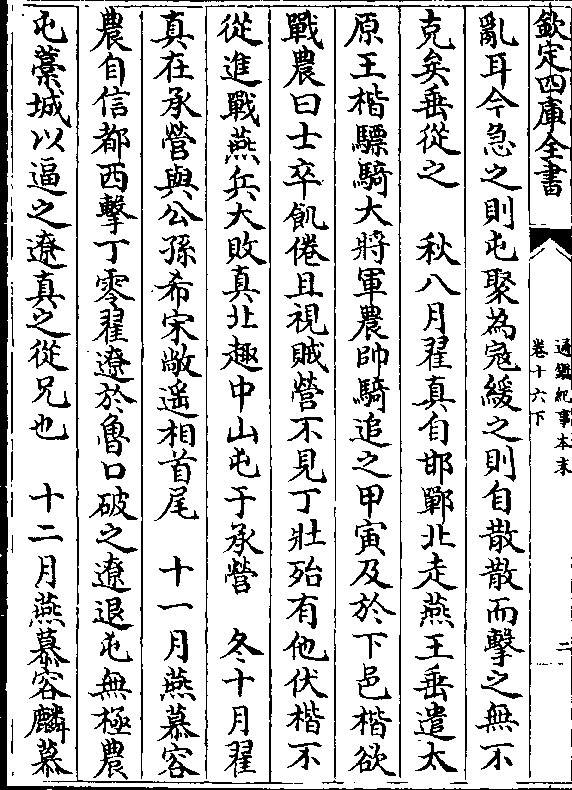 欽定四庫全書
通鑑紀事本末
卷十六下
二
亂耳今急之則屯聚為寇緩之則自散散而擊之無不
克矣垂從之　秋八月翟真自邯鄲北走燕王垂遣太
原王楷驃騎大將軍農帥騎追之甲寅及於下邑楷欲
戰農曰士卒飢倦且視賊營不見丁壯殆有他伏楷不
從進戰燕兵大敗真北趣中山屯于承營　冬十月翟
真在承營與公孫希宋敞遥相首尾　十一月燕慕容
農自信都西擊丁零翟遼於魯口破之遼退屯無極農
屯藁城以逼之遼真之從兄也　十二月燕慕容麟慕